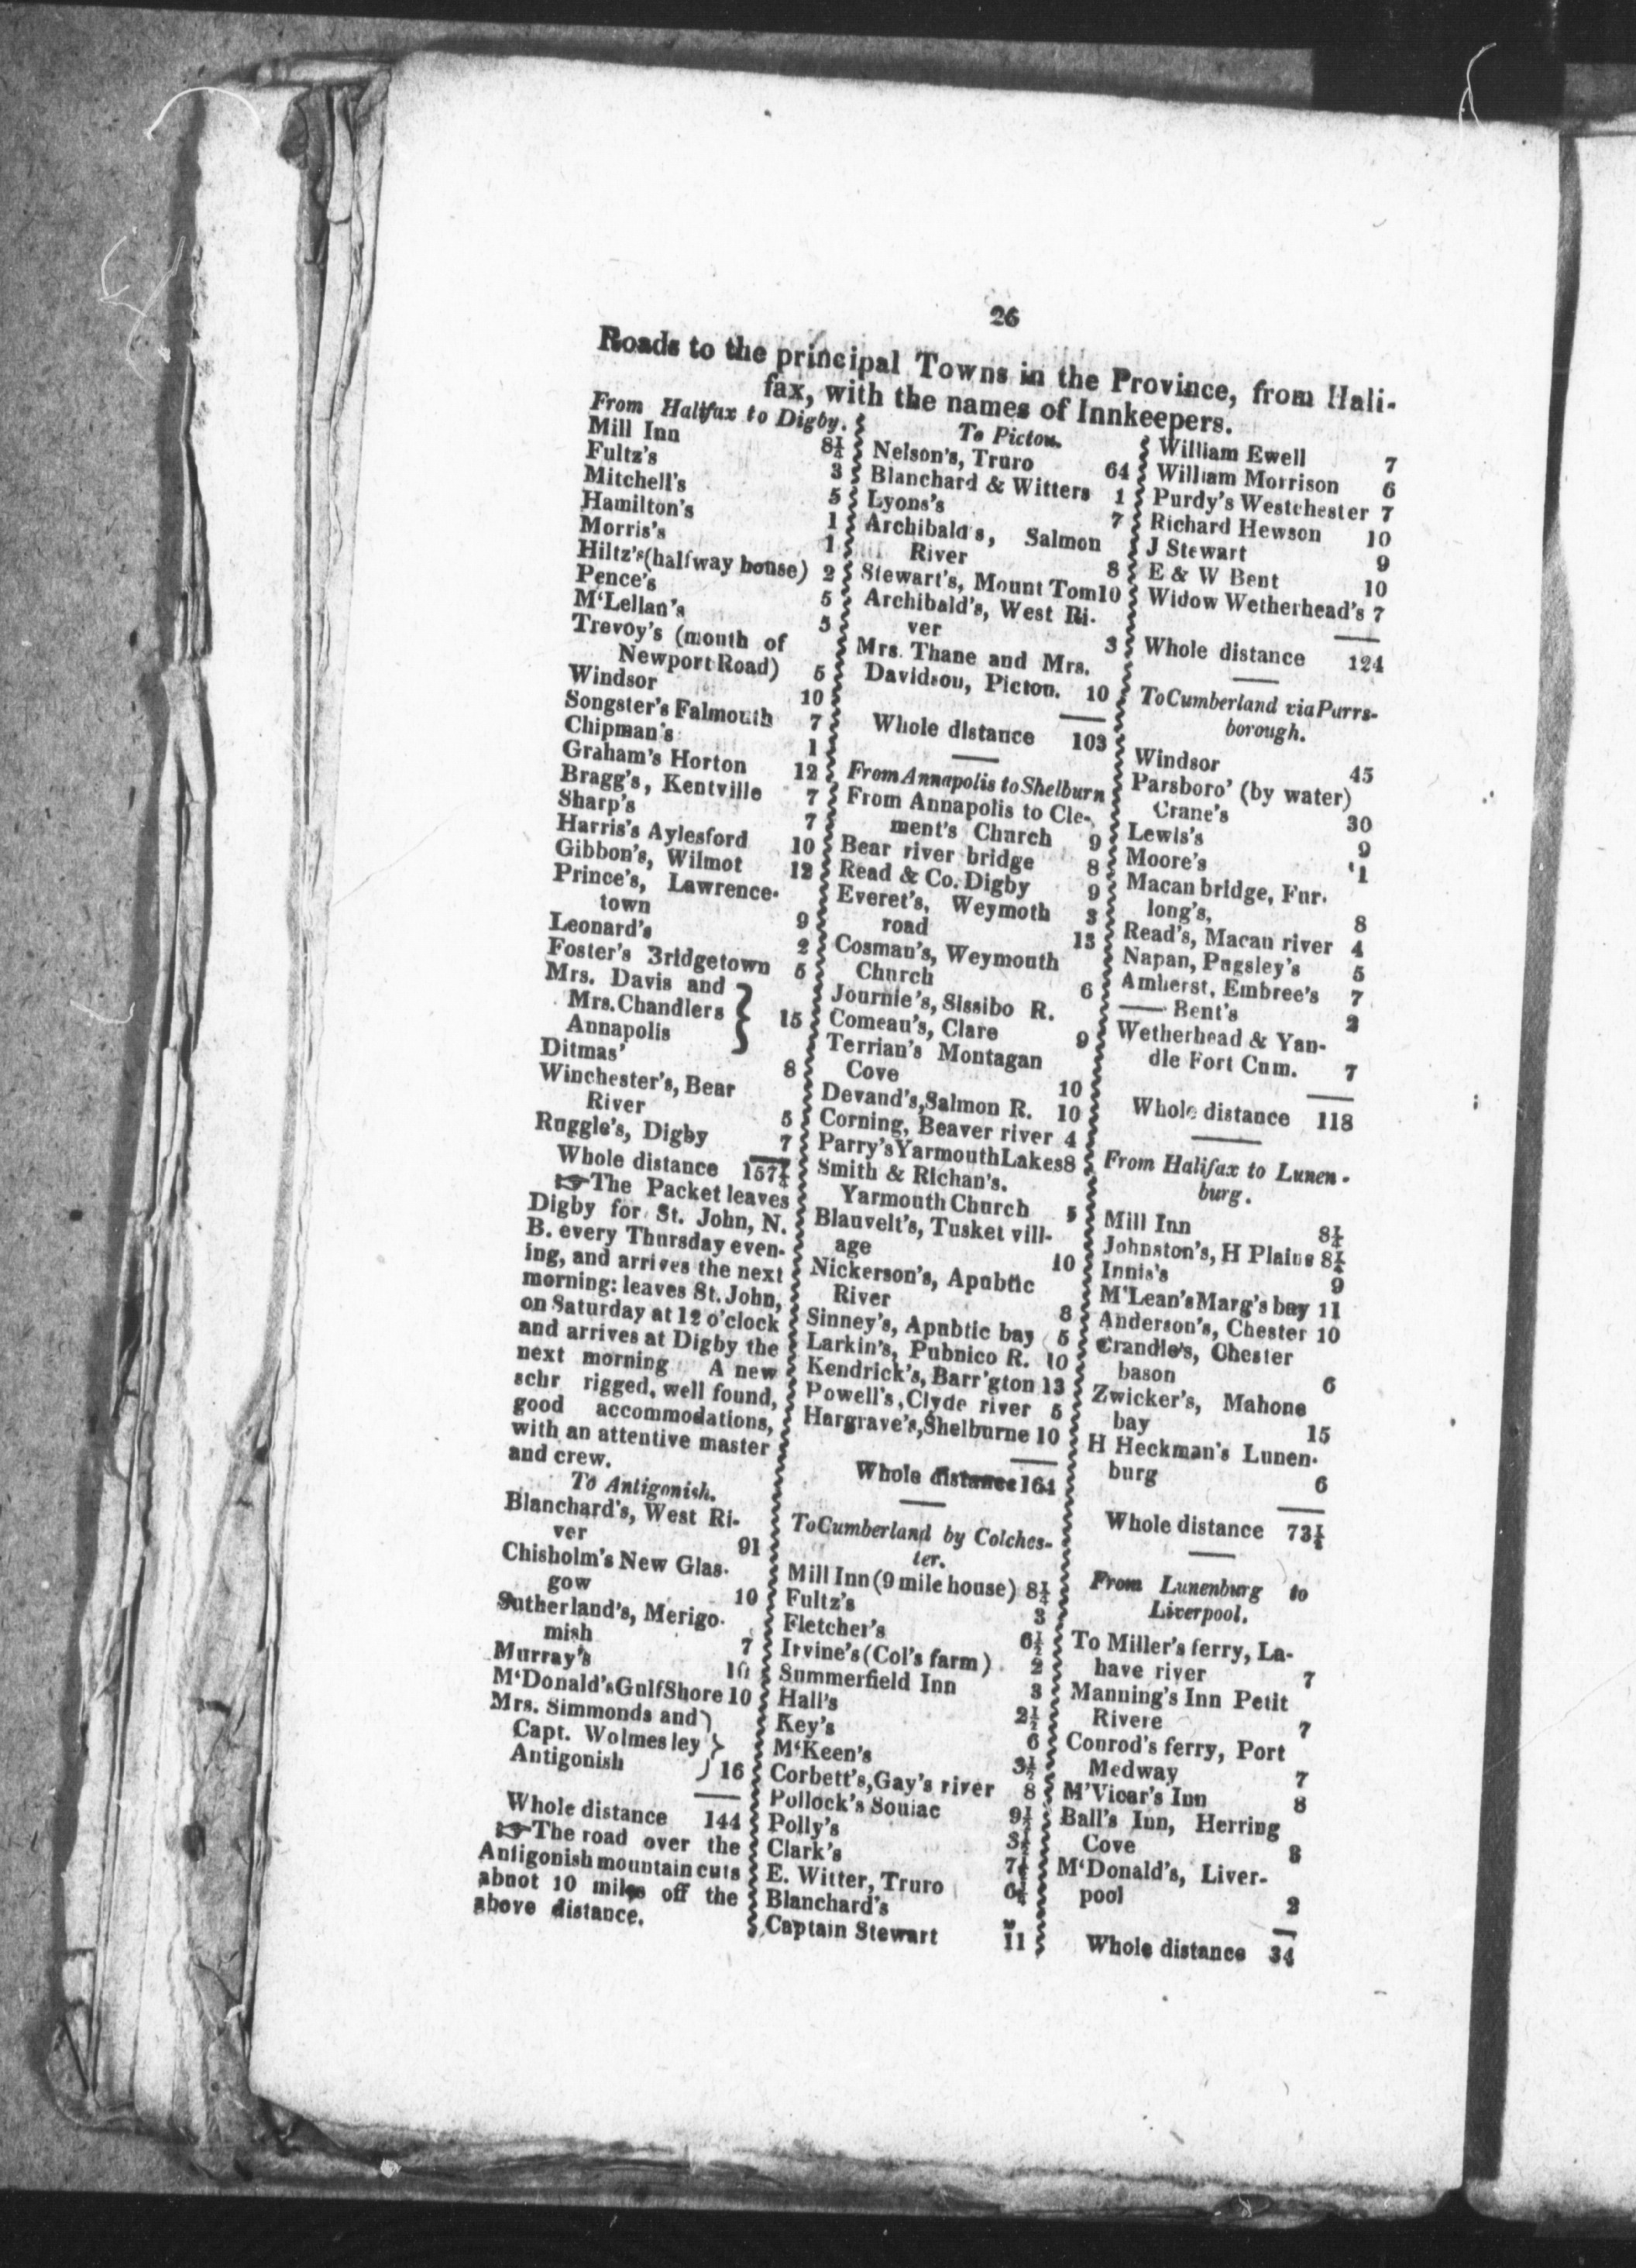 26
Roads to the principal Towns in the Province, from Hali-
fax, with the names of Innkeepers.
From Halifax to Digby.
Mill Inn 8½
Fultz's 3
Mitchell's 5
Hamilton's 1
Morris's 1
Hiltz's (halfway house) 2
Pence's 5
M'Lellan's 5
Trevoy's (mouth of
Newport Road) 5
Windsor 10
Songster's Falmouth 7
Chipman's 1
Graham's Horton 12
Bragg's, Kentville 7
Sharp's 7
Harris's Aylesford 10
Gibbon's, Wilmot 12
Prince's, Lawrence-
town 9
Leonard's 2
Foster's Bridgetown 5
Mrs. Davis and
Mrs. Chandlers
Annapolis } 15
Ditmas' 8
Winchester's, Bear
River 5
Ruggle's, Digby 7
Whole distance 157½
☞The Packet leaves
Digby for St. John, N.
B. every Thursday even-
ing, and arrives the next
morning: leaves St. John,
on Saturday at 12 o'clock
and arrives at Digby the
next morning A new
schr rigged, well found,
good accommodations,
with an attentive master
and crew.
To Antigonish.
Blanchard's, West Ri-
ver 91
Chisholm's New Glas-
gow 10
Sutherland's, Merigo-
mish 7
Murray's 10
M'Donald's Gulf Shore 10
Mrs. Simmonds and
Capt. Wolmesley
Antigonish } 16
Whole distance 144
☞The road over the
Antigonish mountain cuts
abuot 10 miles off the
above distance.
To Pictou.
Nelson's, Truro 64
Blanchard & Witters 1
Lyons's 7
Archibald's, Salmon
River 8
Stewart's, Mount Tom 10
Archibald's, West Ri-
ver 3
Mrs. Thane and Mrs.
Davidson, Pictou. 10
Whole distance 103
From Annapolis to Shelburn
From Annapolis to Cle-
ment's Church 9
Bear river bridge 8
Read & Co. Digby 9
Everet's, Weymoth 3
road 13
Cosman's, Weymouth
Church 6
Journie's, Sissibo R.
Comeau's, Clare 9
Terrian's Montagan
Cove 10
Devand's, Salmon R. 10
Corning, Beaver river 4
Parry's Yarmouth Lakes 8
Smith & Richan's.
Yarmouth Church 5
Blauvelt's, Tusket vill-
age 10
Nickerson's, Apubtic
River 8
Sinney's, Apubtic bay 5
Larkin's, Pubnico R. 10
Kendrick's, Barr'gton 13
Powell's, Clyde river 5
Hargrave's, Shelburne 10
Whole distance 164
To Cumberland by Colches-
ter.
Mill Inn (9 mile house) 8½
Fultz's 3
Fletcher's 6½
Irvine's (Col's farm) 2
Summerfield Inn 3
Hall's 2½
Key's 6
M'Keen's 3½
Corbett's, Gay's river 8
Pollock's Souiac 9½
Polly's 3½
Clark's 7½
E. Witter, Truro 6½
Blanchard's
Captain Stewart 11
William Ewell 7
William Morrison 6
Purdy's Westchester 7
Richard Hewson 10
J Stewart 9
E & W Bent 10
Widow Wetherhead's 7
Whole distance 124
To Cumberland via Parrs-
borough.
Windsor 45
Parsboro' (by water)
Crane's 30
Lewis's 9
Moore's 1
Macan bridge, Fur-
long's, 8
Read's, Macan river 4
Napan, Pugsley's 5
Amherst, Embree's 7
—— Bent's 2
Wetherhead & Yan-
dle Fort Cum. 7
Whole distance 118
From Halifax to Lunen-
burg.
Mill Inn 8½
Johnston's, H Plains 8½
Innis's 9
M'Lean's Marg's bay 11
Anderson's, Chester 10
Crandle's, Chester
bason 6
Zwicker's, Mahone
bay 15
H Heckman's Lunen-
burg 6
Whole distance 73½
From Lunenburg to
Liverpool.
To Miller's ferry, La-
have river 7
Manning's Inn Petit
Rivere 7
Conrod's ferry, Port
Medway 7
M'Vicar's Inn 8
Ball's Inn, Herring
Cove 3
M'Donald's, Liver-
pool 2
Whole distance 34